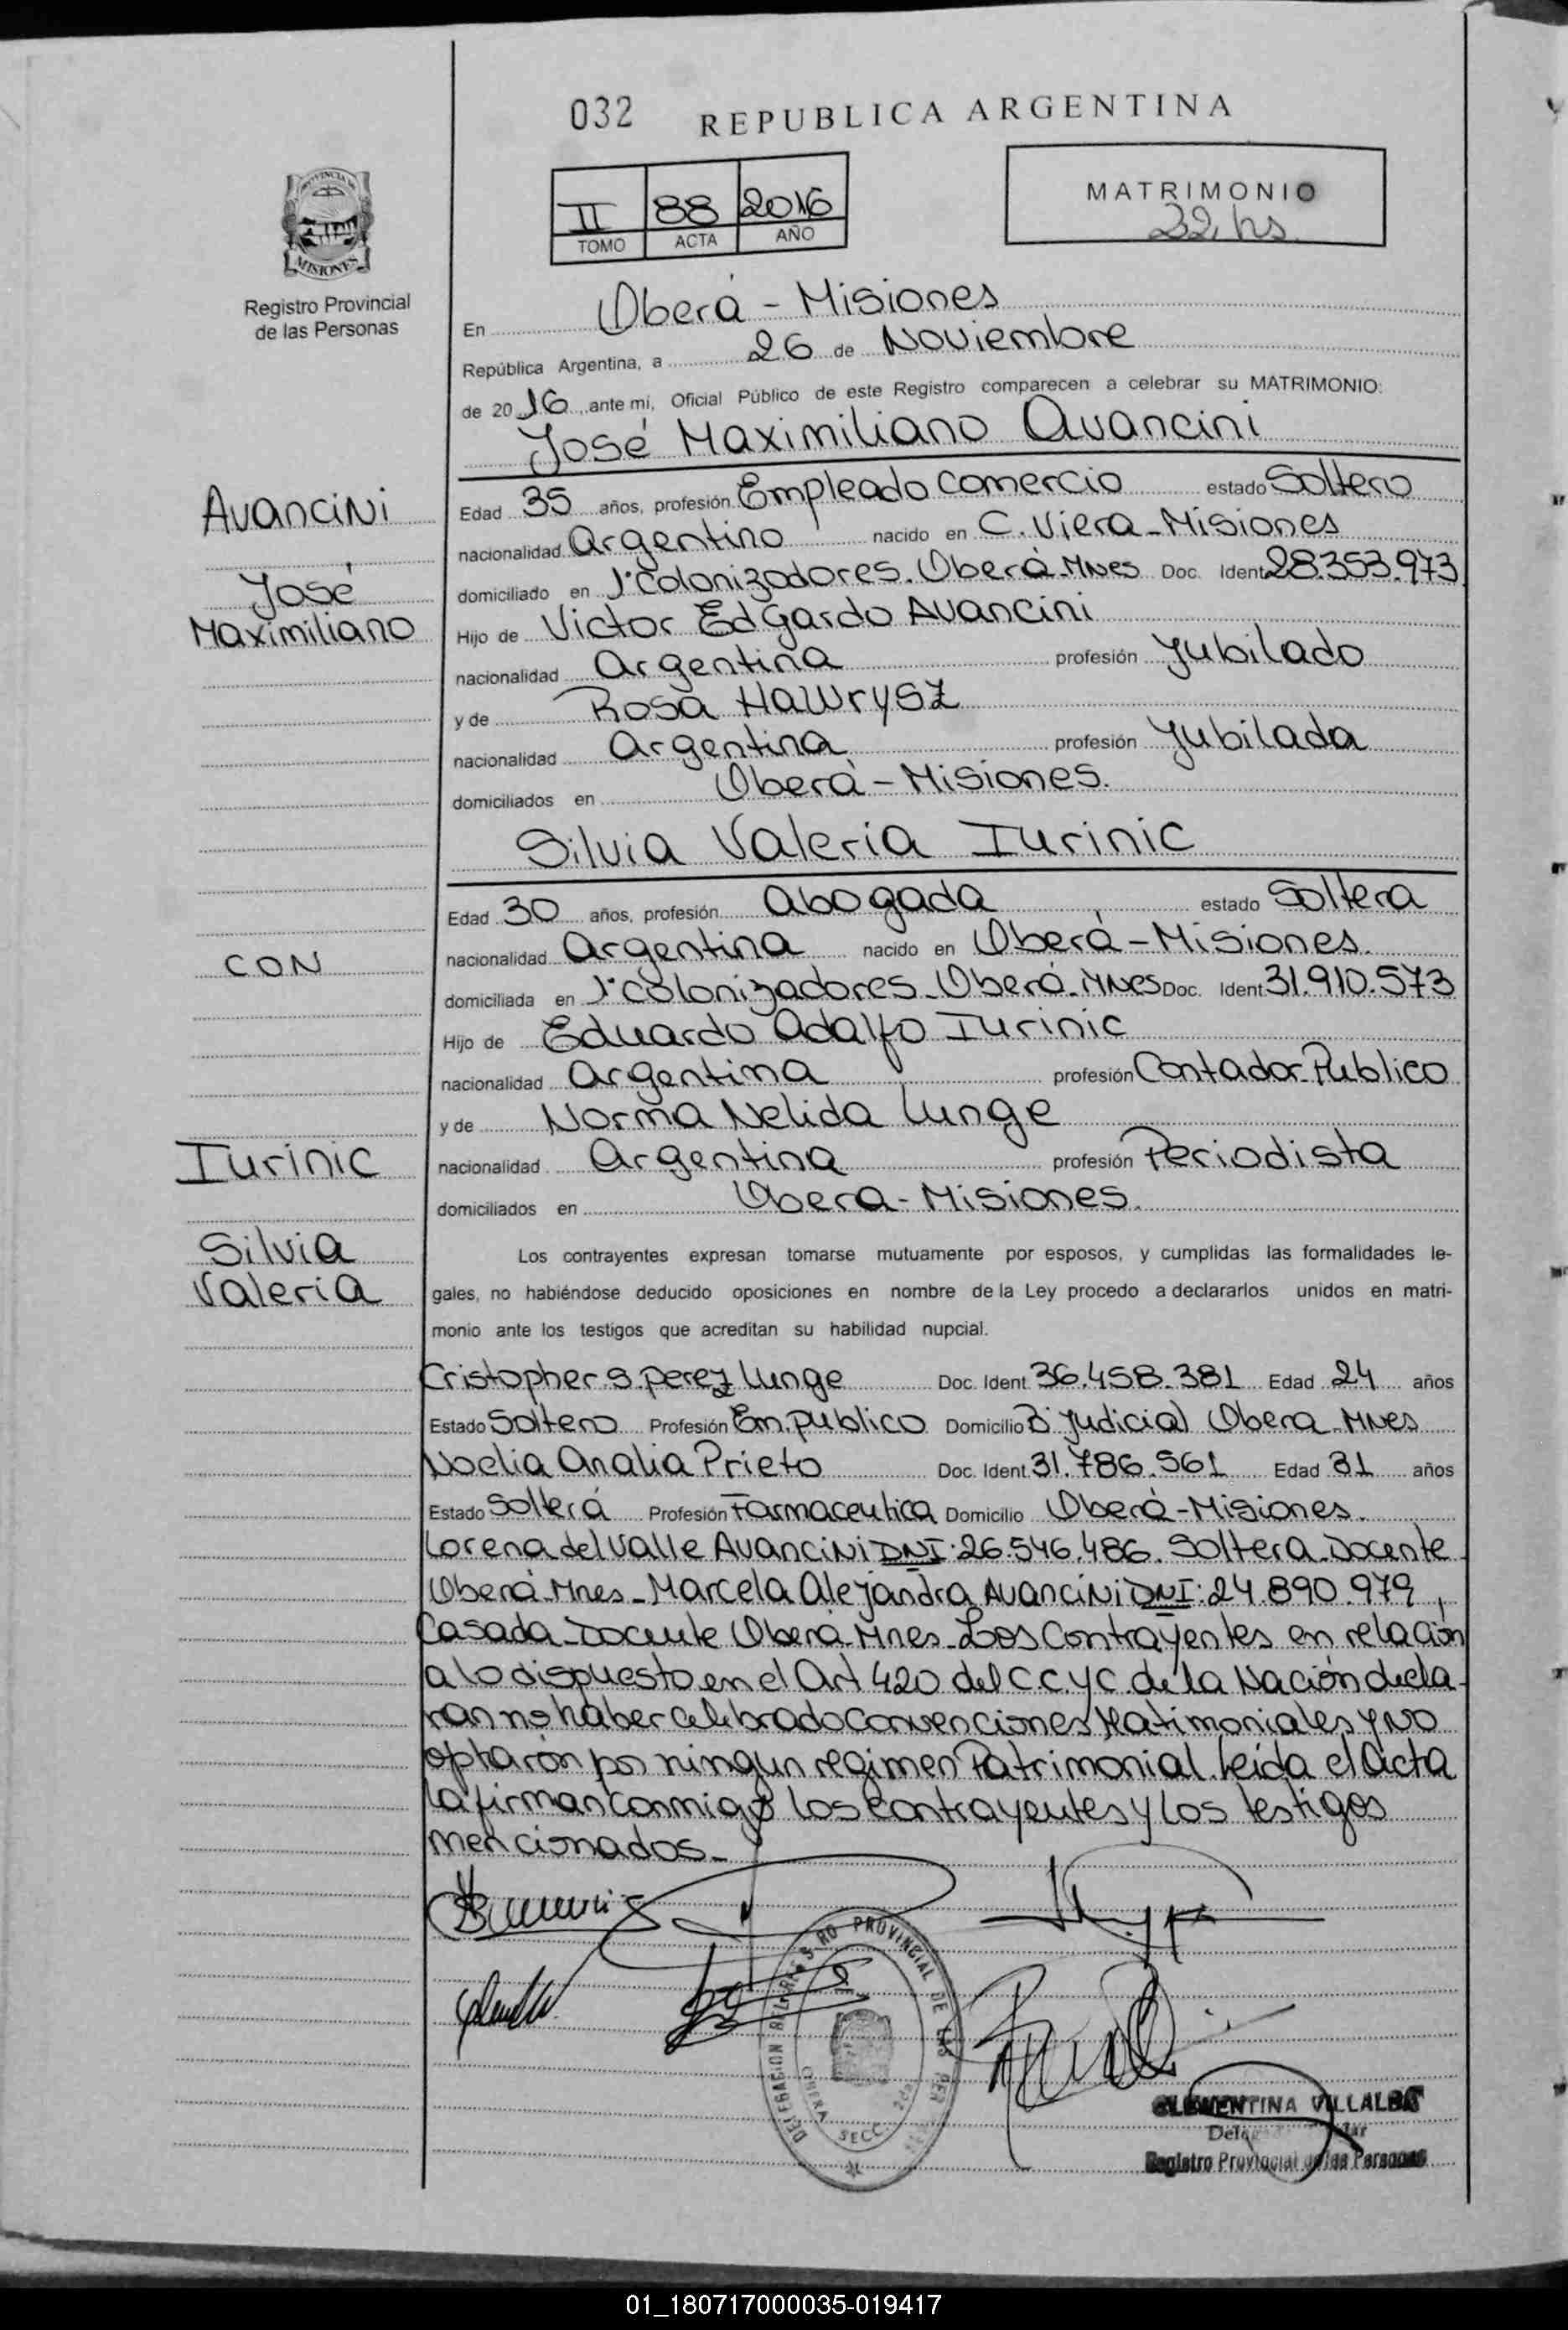 032 REPUBLICA ARGENTINA
PROVINCIA DE
MISIONES
Registro Provincial
de las Personas
II 88 2016
TOMO ACTA AÑO
MATRIMONIO
22 hs.
En Oberá - Misiones
República Argentina, a 26 de Noviembre
de 2016, ante mí, Oficial Público de este Registro comparecen a celebrar su MATRIMONIO:
José Maximiliano Avancini
Avancini
José
Maximiliano
Edad 35 años, profesión Empleado Comercio estado Soltero
nacionalidad Argentino nacido en C. Viera - Misiones
domiciliado en 1° Colonizadores. Oberá - Mnes Doc. Ident 28.353.973
Hijo de Victor Edgardo Avancini
nacionalidad Argentina profesión Jubilado
y de Rosa Hawrysz
nacionalidad Argentina profesión Jubilada
domiciliados en Oberá - Misiones.
Silvia Valeria Iurinic
CON
Edad 30 años, profesión Abogada estado Soltera
nacionalidad Argentina nacido en Oberá - Misiones.
domiciliada en 1° Colonizadores - Oberá - Mnes Doc. Ident 31.910.573
Hijo de Eduardo Adalfo Iurinic
nacionalidad Argentina profesión Contador Publico
y de Norma Nelida Lunge
Iurinic
Silvia
Valeria
nacionalidad Argentina profesión Periodista
domiciliados en Obera - Misiones.
Los contrayentes expresan tomarse mutuamente por esposos, y cumplidas las formalidades le-
gales, no habiéndose deducido oposiciones en nombre de la Ley procedo a declararlos unidos en matri-
monio ante los testigos que acreditan su habilidad nupcial.
Cristopher. S. Perez Lunge Doc. Ident. 36.458.381 Edad 24 años
Estado Soltero Profesión Em. publico Domicilio B° Judicial Obera - Mnes
Noelia Analia Prieto Doc. Ident. 31.786.561 Edad 31 años
Estado Soltera Profesión Farmaceutica Domicilio Oberá - Misiones.
Lorena del Valle Avancini DNI: 26.546.486. Soltera - Docente
Oberá - Mnes - Marcela Alejandra Avancini DNI: 24.890.979,
Casada - Docente Oberá - Mnes - Los Contrayentes en relación
a lo dispuesto en el Art 420 del C.C.YC. de la Nación decla-
ran no haber celebrado Convenciones Matimoniales y NO
optaron por ningun regimen Patrimonial. Leida el Acta
la firman conmigo los contrayentes y los testigos
mencionados.-
PROVINCIAL DE LAS
DELEGACION
SECC.
CLEMENTINA VILLALBA
Registro Provincial de las Personas
01_180717000035-019417